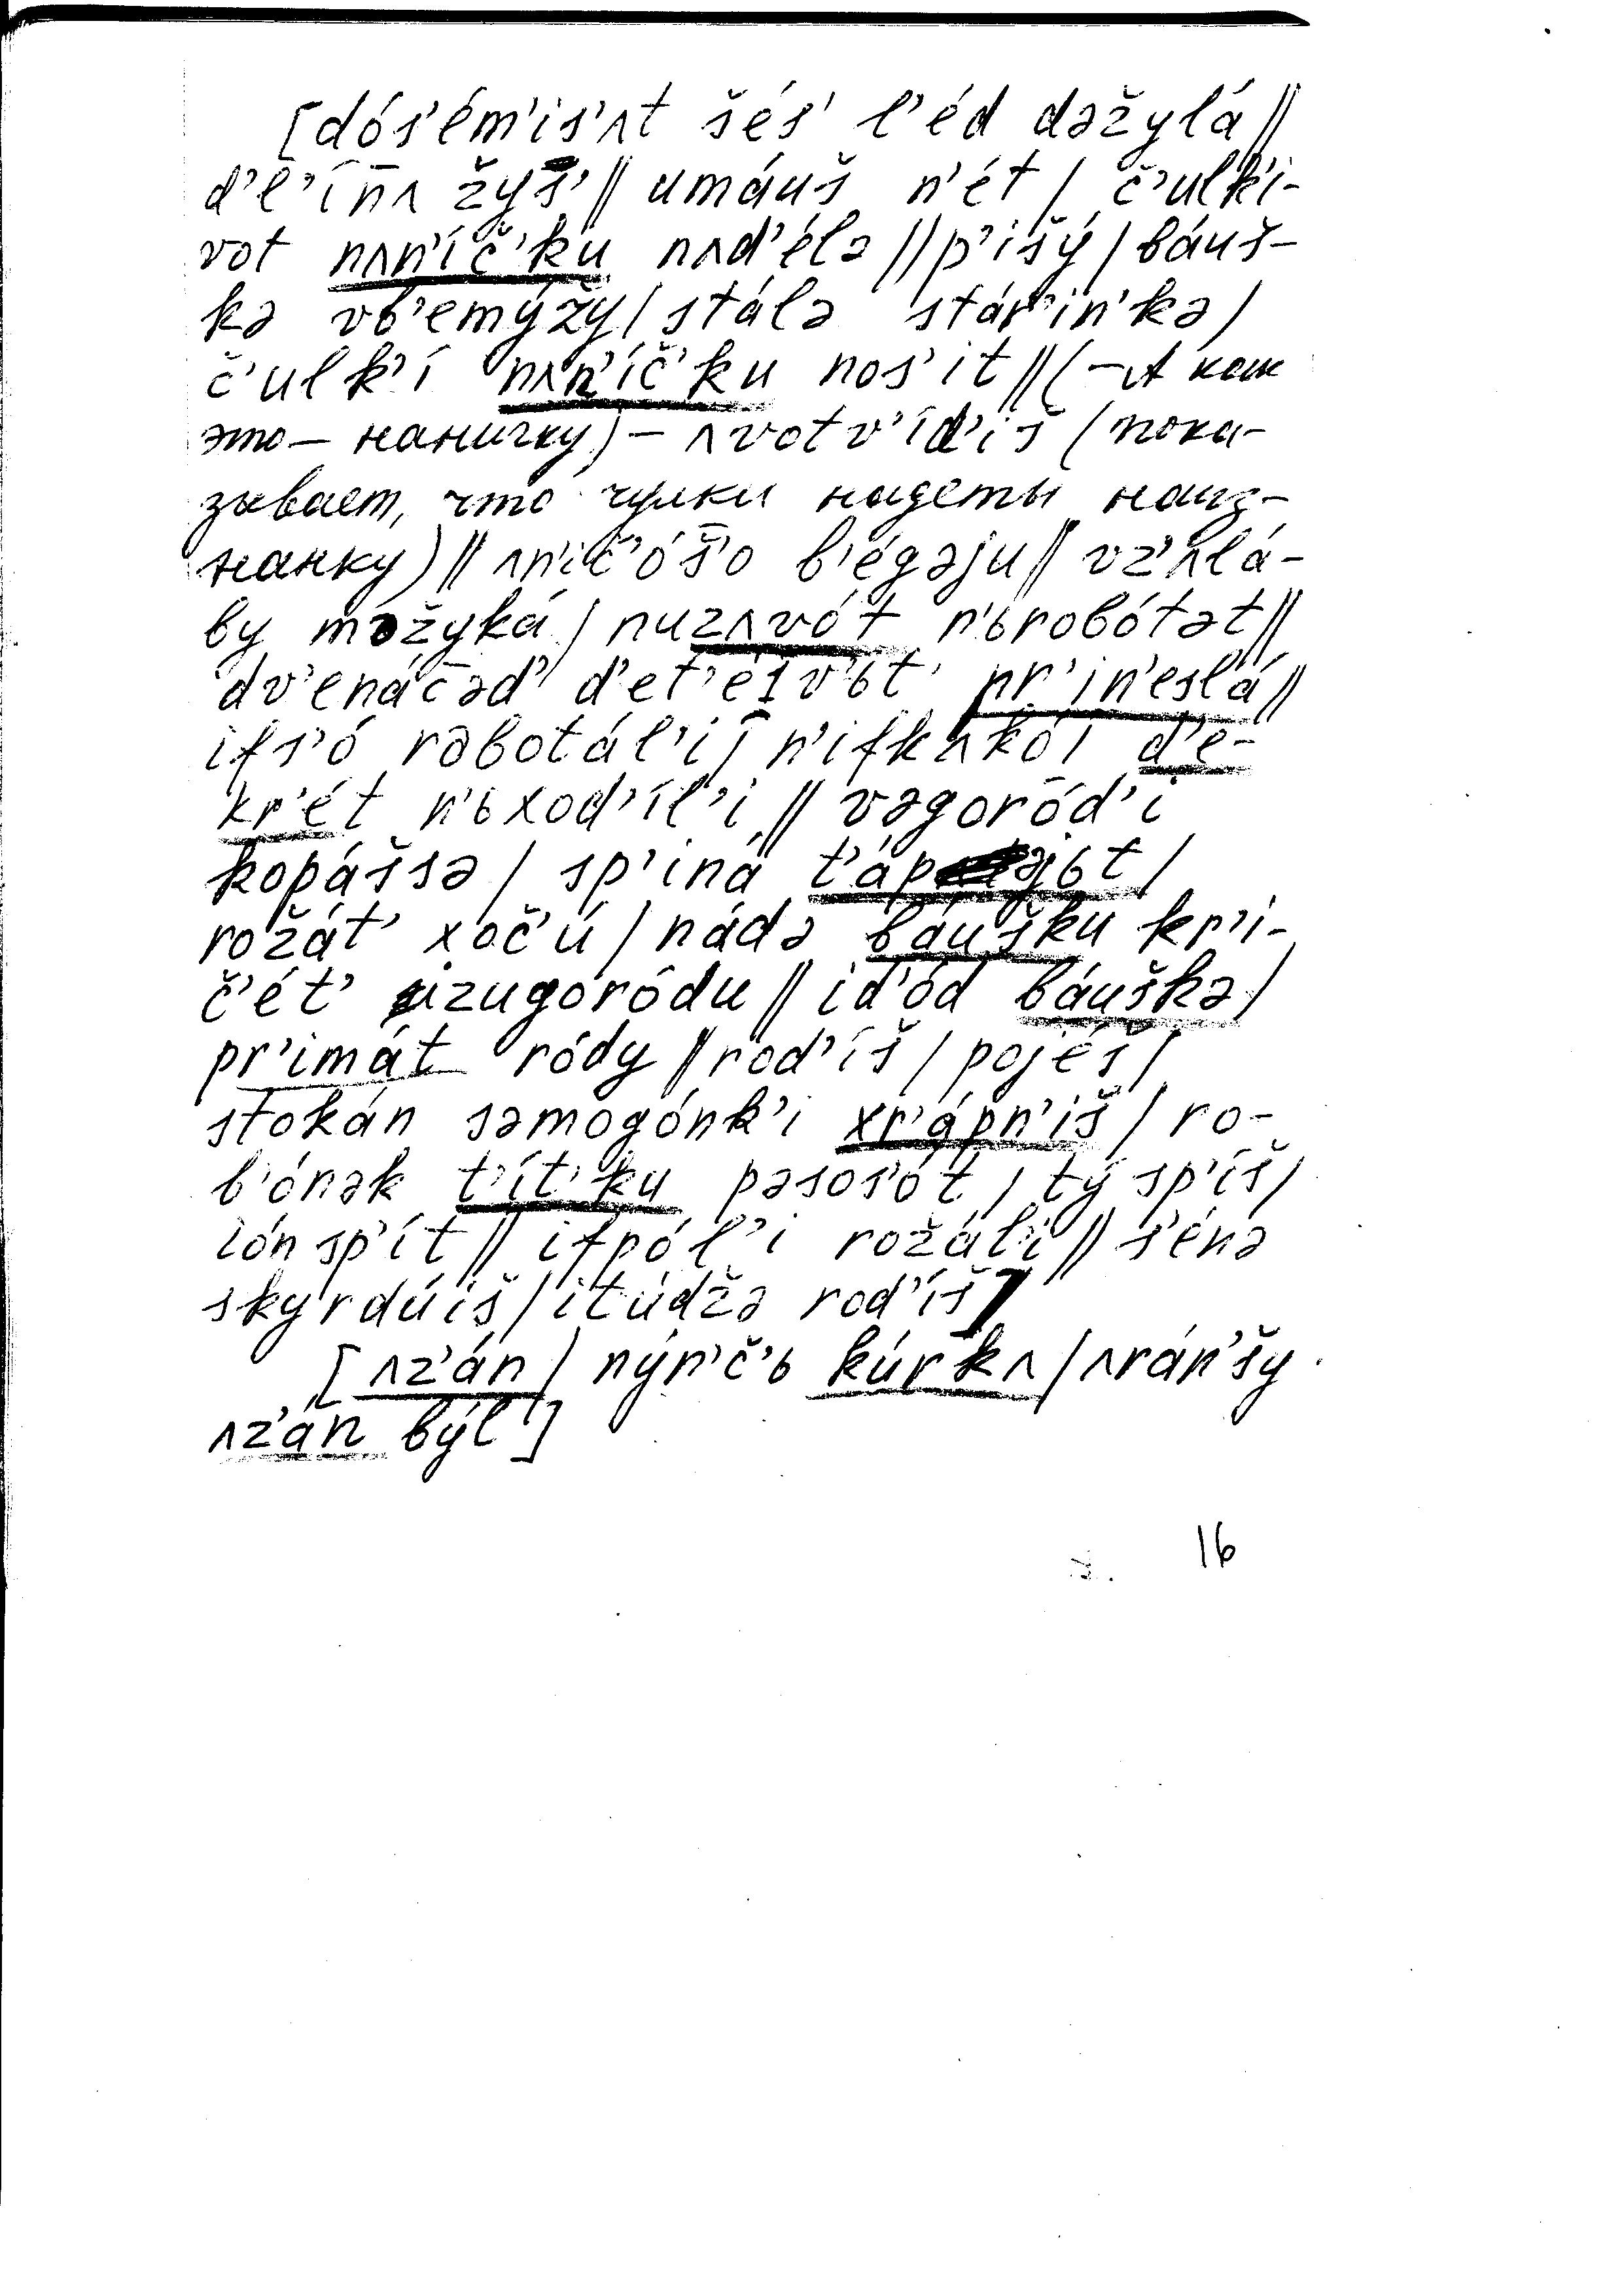 [dós'ém'is'ʌt šés' l'éd dəžylá||
d'l'ín̄ʌ žys̄'|| umáuš n'ét / č'ulk'i-
vot nʌn'íč'ku nʌd'élə || p'išý / báuš-
kə vb'emýžy / stálə stár'in'kə /
č'ulk'í nʌn'íč'ku nos'it || (– А как
это – наничку) – ʌvotv'íd'iš (пока-
зывает, что чулки надеты наиз-
нанку) || ʌn'ič'óš̄'o b'égəju || vz'ʌlá-
by možyká / nuzʌvót n'ьrobótət ||
dv'enác̄əd' d'et'éi̯v'ьt' pr'in'eslá ||
ifs'ó rəbotál'i / n'ifkʌkói d'e-
kr'ét n'ьxod'íl'i || vəgoród'i
kopášsə / sp'iná t'ápəjьt /
rožát' xoč'ú / nádə báušku kr'i-
č'ét' izugoródu || id'ód báuškə /
pr'imát ródy || rod'íš / pojéš /
stokán səmogónk'i xr'ápn'iš / ro-
b'ónək t'ít'ku pəsos'ót / tý sp'íš /
ión sp'ít || ifpól'i rožáli || s'énə
skyrdúiš / itúdžə rod'íš]
[ʌz'án / nýn'č'ь kúrkʌ / ʌrán'šy
ʌz'án býl]
16